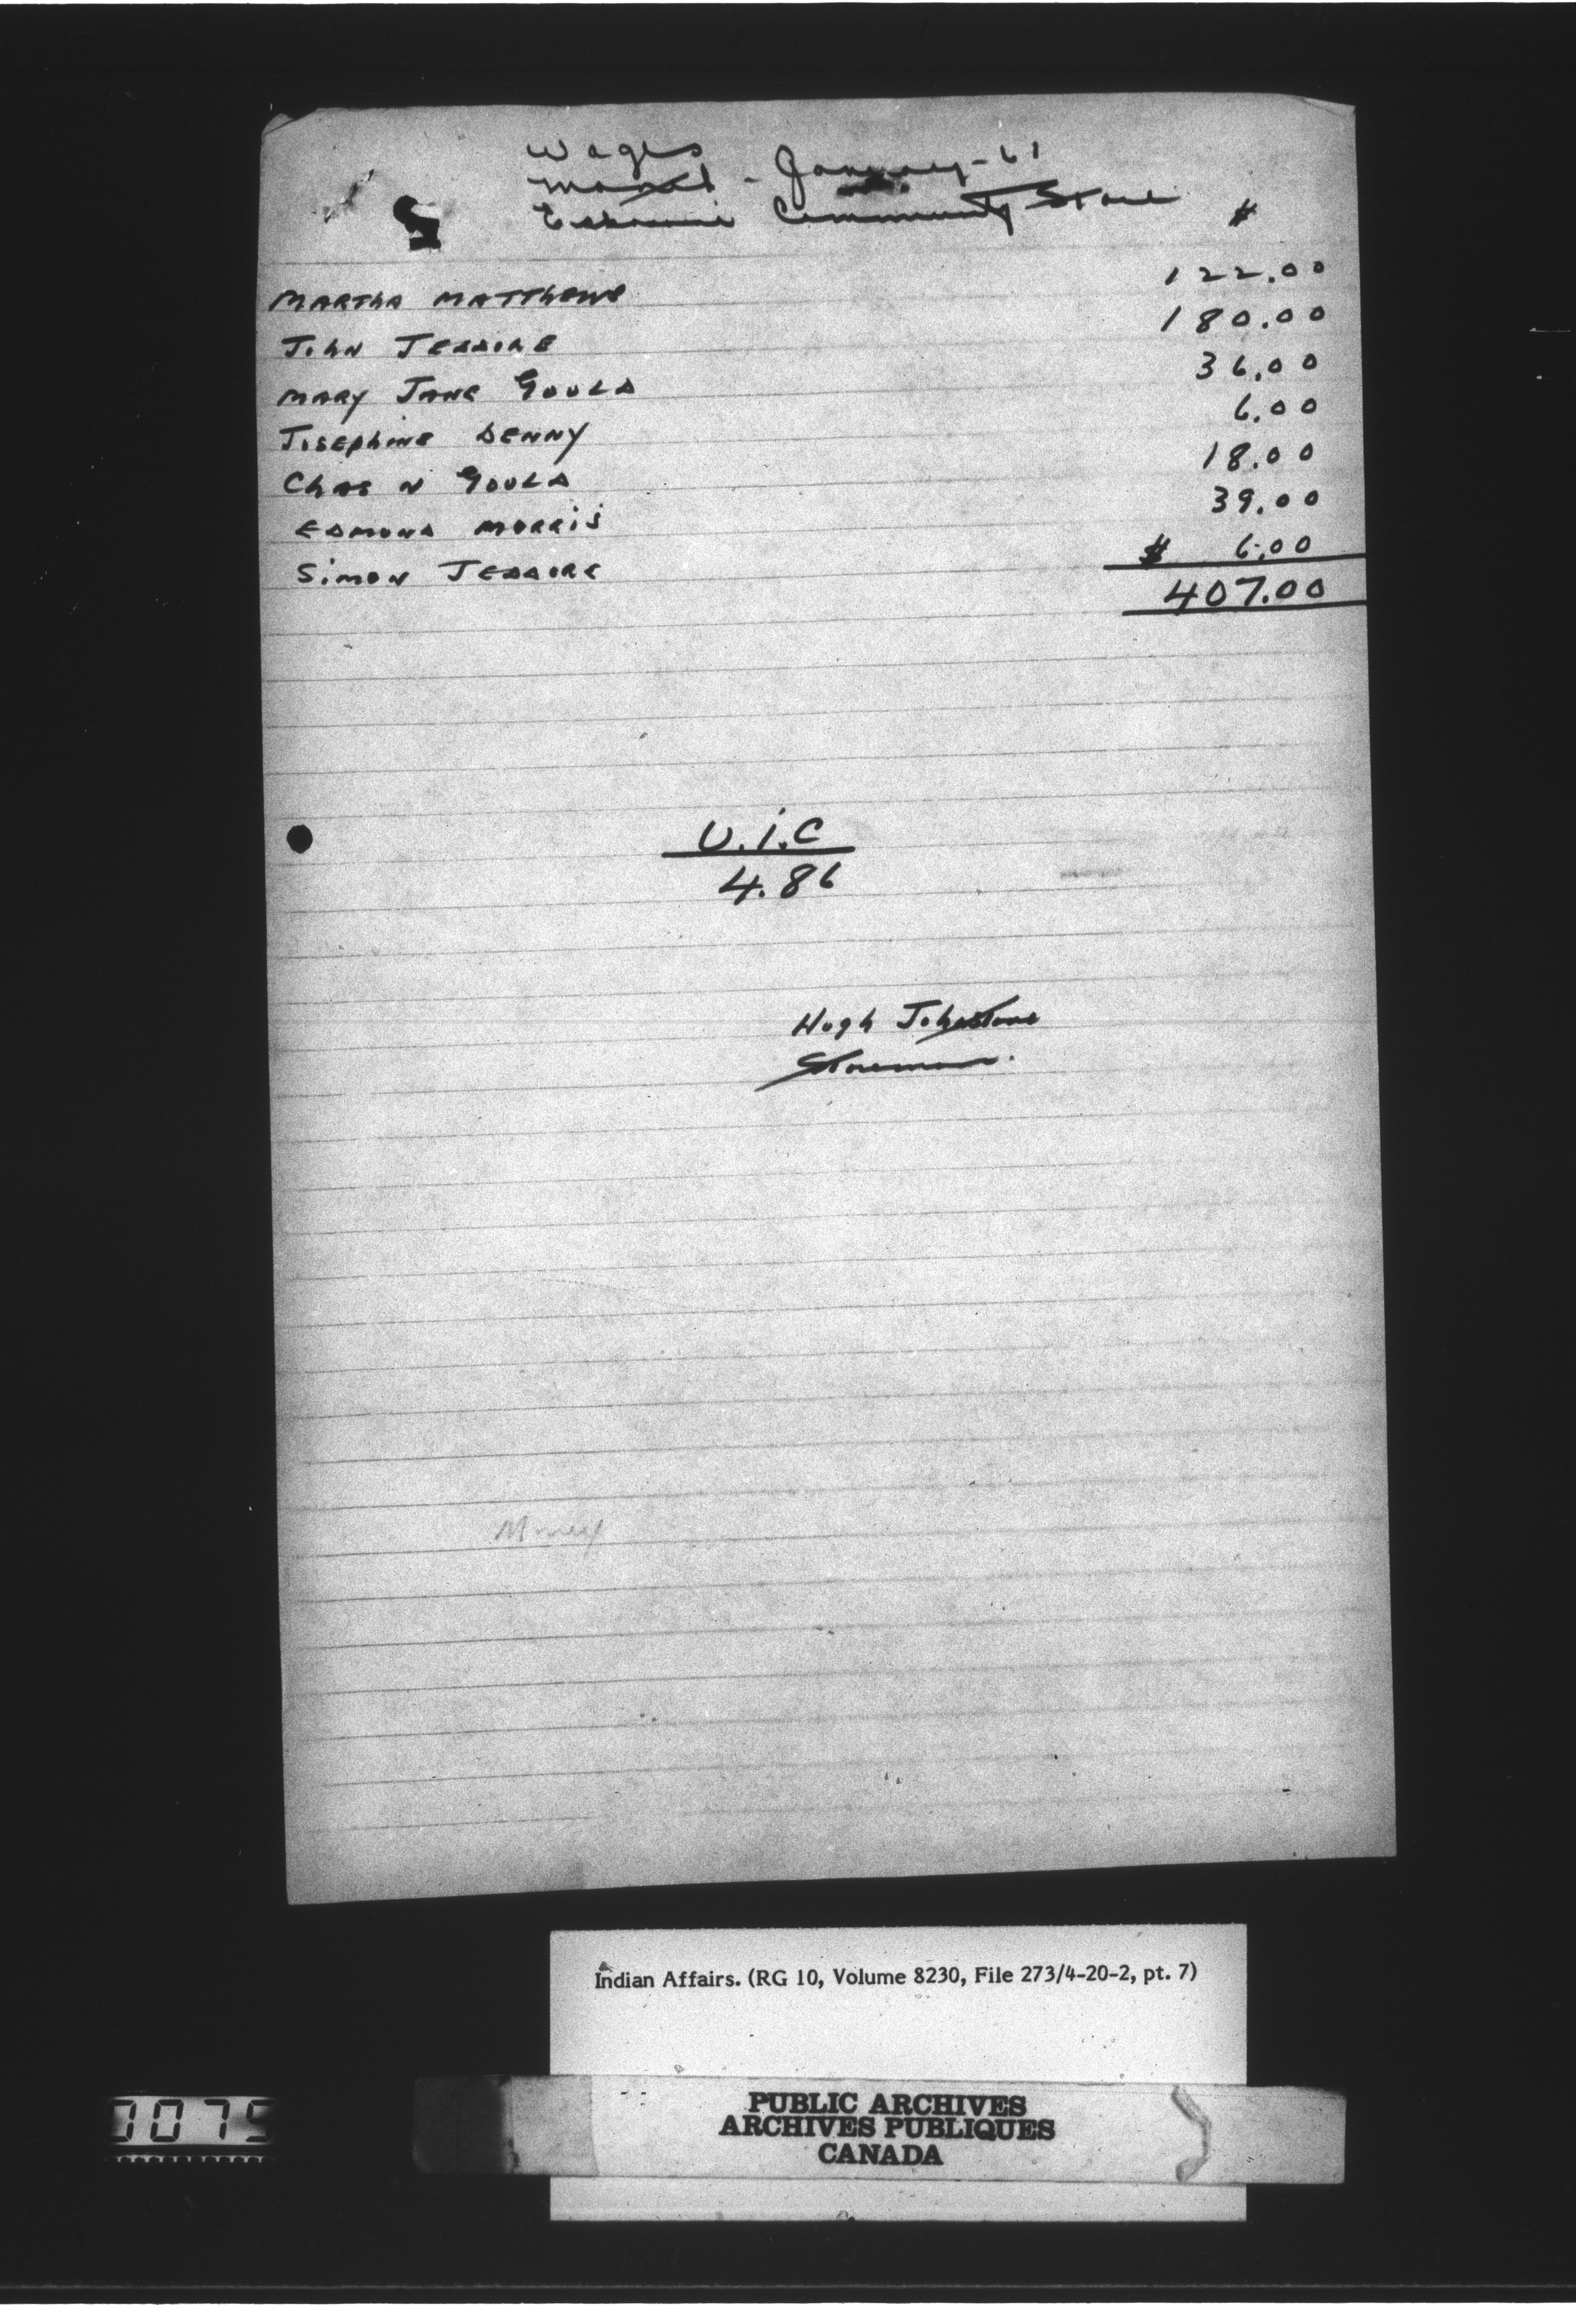 Wages
Month - January - 61
Eskasoni Community Store
$
MARTHA MATTHEWS 122.00
JOHN JEDDORE 180.00
MARY JANE GOULD 36.00
JOSEPHINE DENNY 6.00
Chas N GOULD 18.00
EDMOND MORRIS 39.00
SIMON JEDDORE $ 6.00
407.00
U.I.C
4.86
Hugh Johnstone
Storeman.
Indian Affairs. (RG 10, Volume 8230, File 273/4-20-2, pt. 7)
PUBLIC ARCHIVES
ARCHIVES PUBLIQUES
CANADA